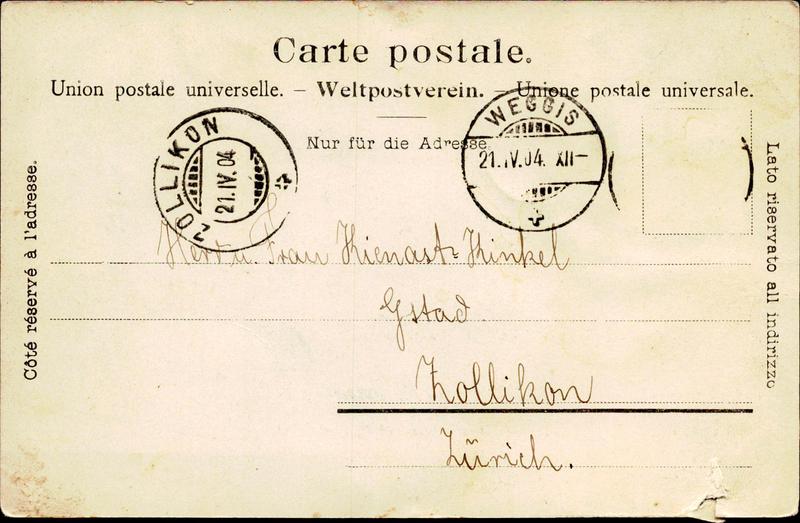 Carte postale.
Union postale universelle. – Weltpostverein. – Unione postale universale.
Nur für die Adresse
ZOLLIKON
21.IV.04
WEGGIS
21.IV.04. XII–
Côté réservé à l'adresse.
Lato riservato all indirizzo
Herr u. Frau Kienast-Kinkel
Gstad
Zollikon
Zürich.